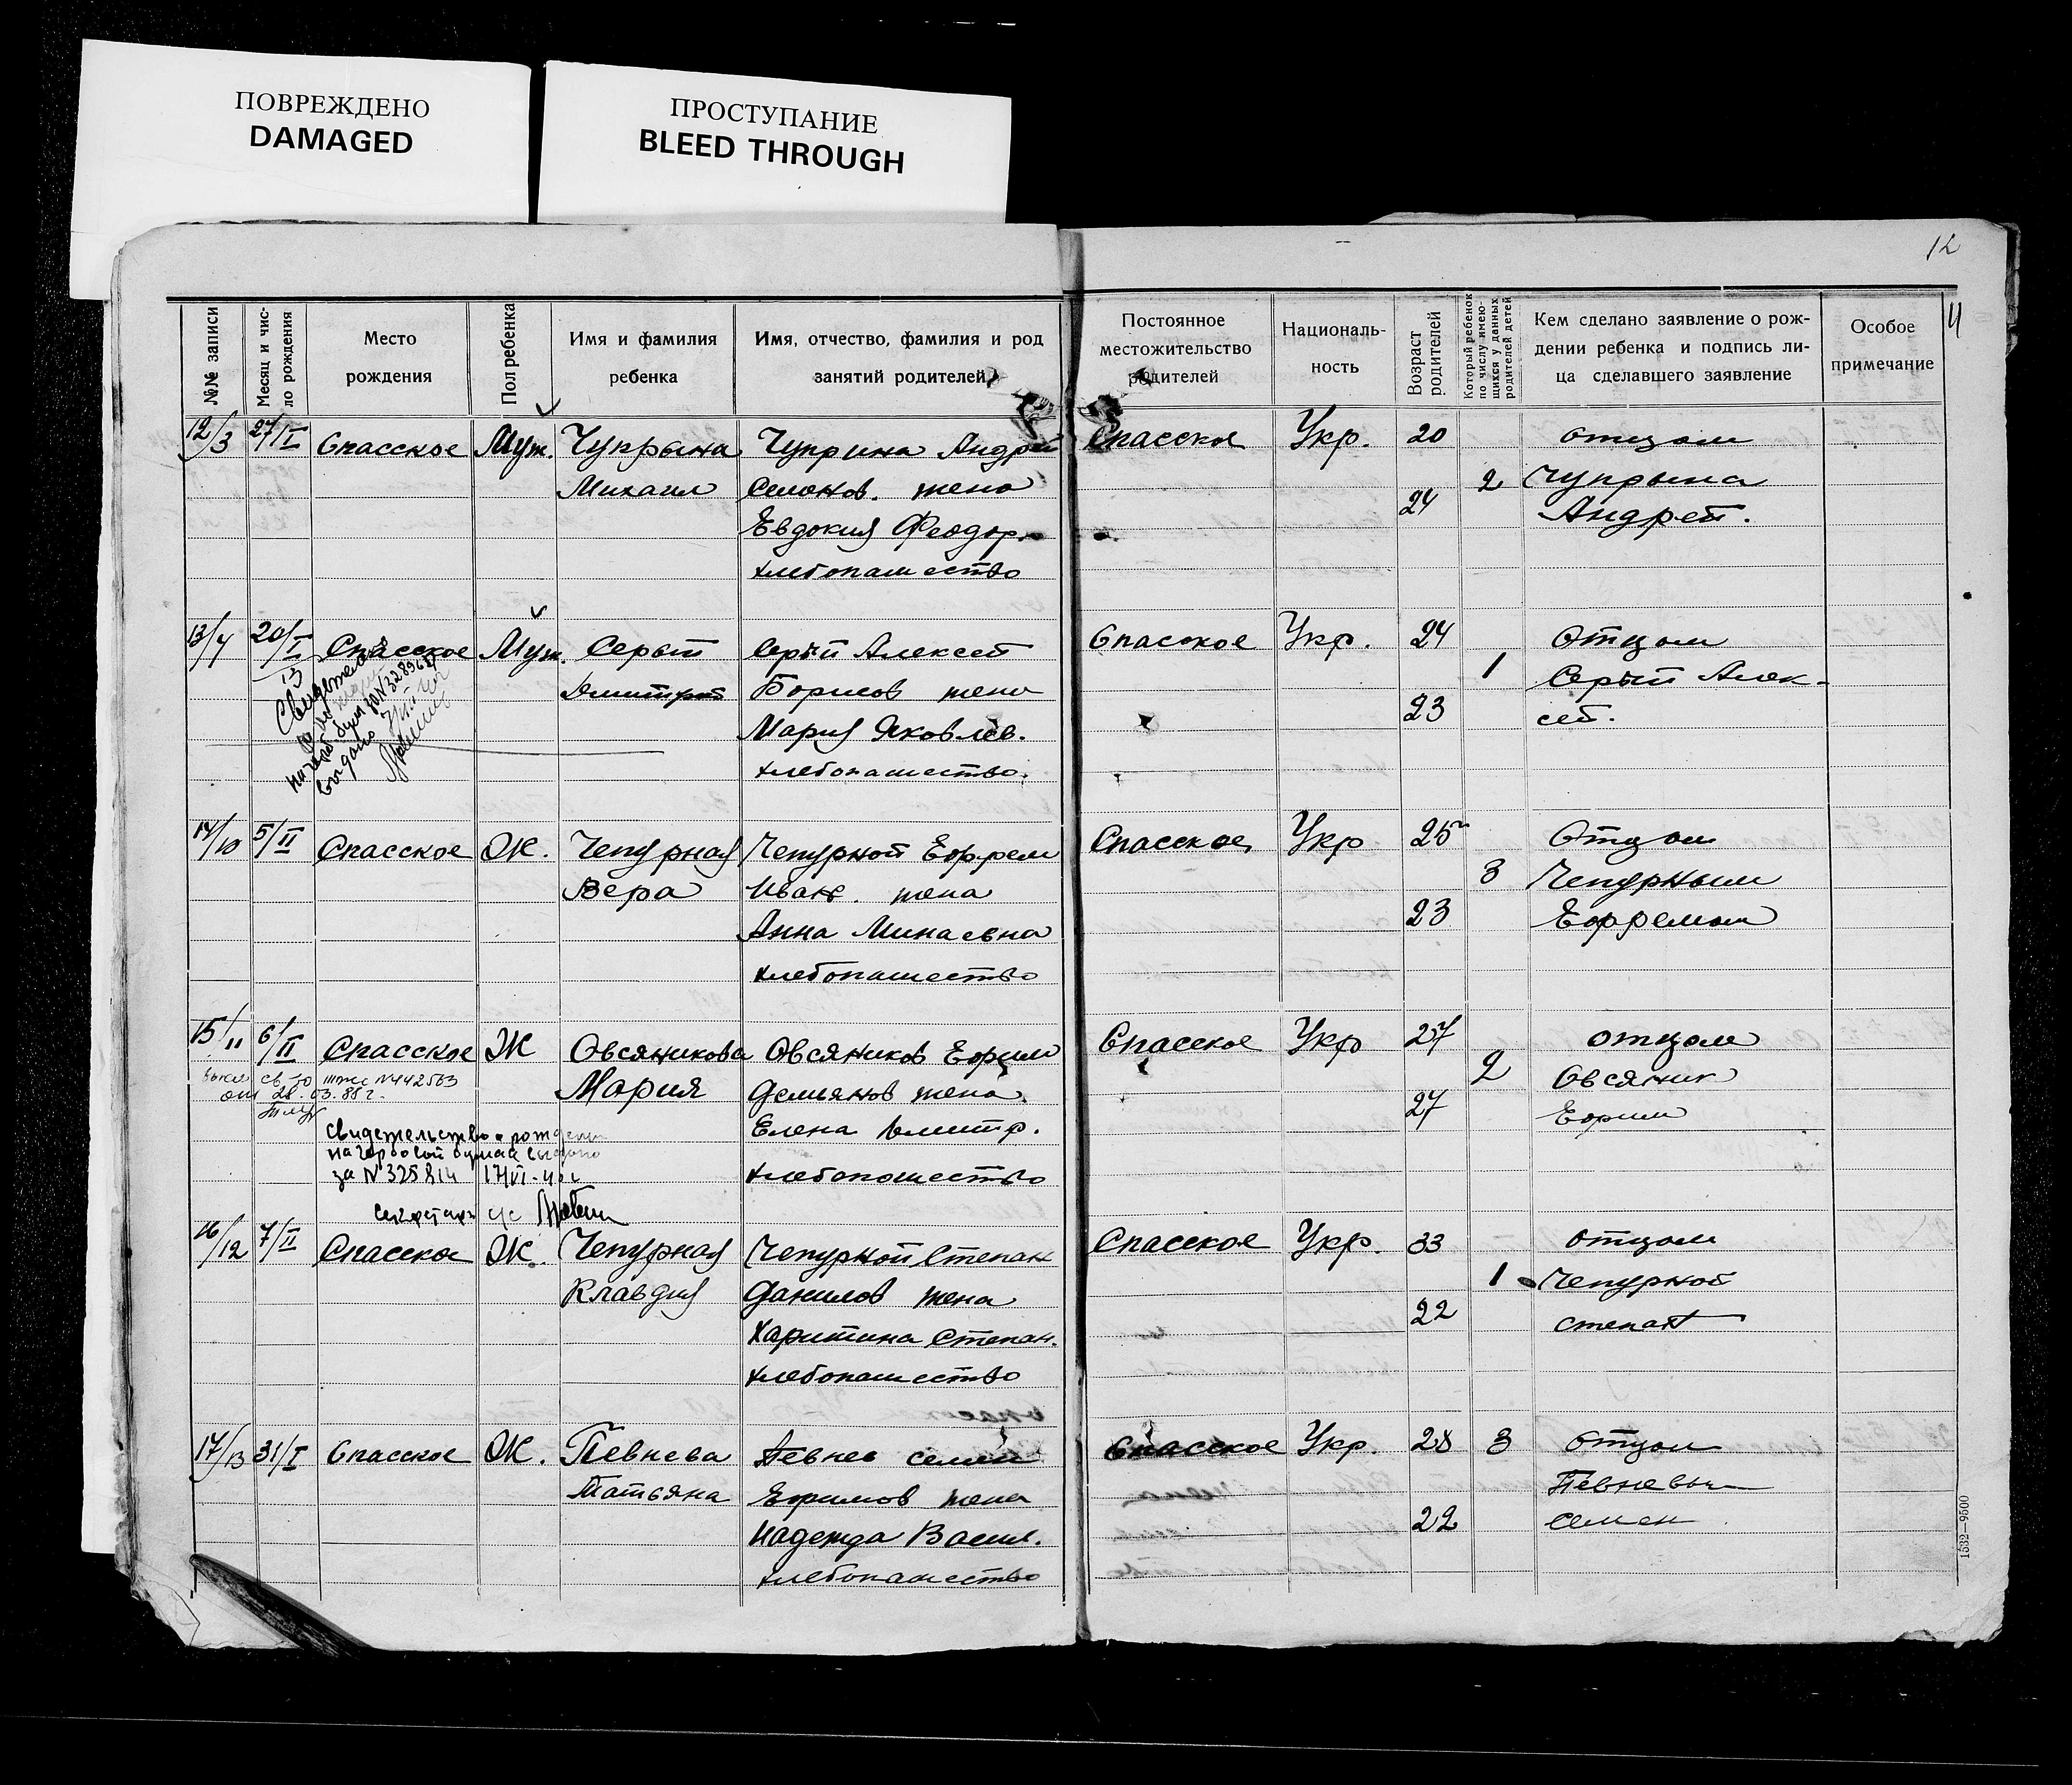 ПОВРЕЖДЕНО
DAMAGED
ПРОСТУПАНИЕ
BLEED THROUGH
12
№№ записи
Месяц и чис-
ло рождения
Место
рождения
Пол ребенка
Имя и фамилия
ребенка
Имя, отчество, фамилия и род
занятий родителей
Постоянное
местожительство
родителей
Националь-
ность
Возраст
родителей
Который ребенок
по числу имею-
щихся у данных
родителей детей
Кем сделано заявление о рож-
дении ребенка и подпись ли-
ца сделавшего заявление
Особое
примечание
12/3 27/I Спасское Муж. Чупрына Чуприна Андрей Спасское Укр. 20 отцом
Михаил Семонов. жена 2 Чупрына
Евдокия Феодор. 24 Андрей.
хлебопашество
13/4 20/I Спасское Муж. Серый Серый Алексей Спасское Укр. 24 Отцом
13
Дмитрий Борисов жена 1 Серый Алек-
Мария Яковлев. 23 сей.
хлебопашество.
Свидетель
на герб. бум
выдано
14/10 5/II Спасское Ж. Чепурная Чепурной Ефрем Спасское Укр 25 Отцом
Вера Иван. жена 3 Чепурным
Анна Минаевна 23 Ефремом
хлебопашество
15/11 6/II Спасское Ж Овсяникова Овсяников Ефим Спасское Укр 27 отцом
Мария Демьянов жена 2 Овсяник
Елена Дмитр. 27 Ефим
хлебопашество
№442563
от 28.03.88г.
Свидетельство о рожден
на гербовой бумаге выдано
за №325814 17/VI-
секретарь с/с
16/12 7/II Спасское Ж. Чепурная Чепурной Степан Спасское Укр. 33 отцом
Клавдия Данилов жена 1 Чепурной
Харитина Степан. 22 степан
хлебопашество
17/13 31/I Спасское Ж. Певнева Певнев семен Спасское Укр. 28 3 отцом
Татьяна Ефимов жена Певневым
Надежда Васил. 22 семен
хлебопашество
1532—9500